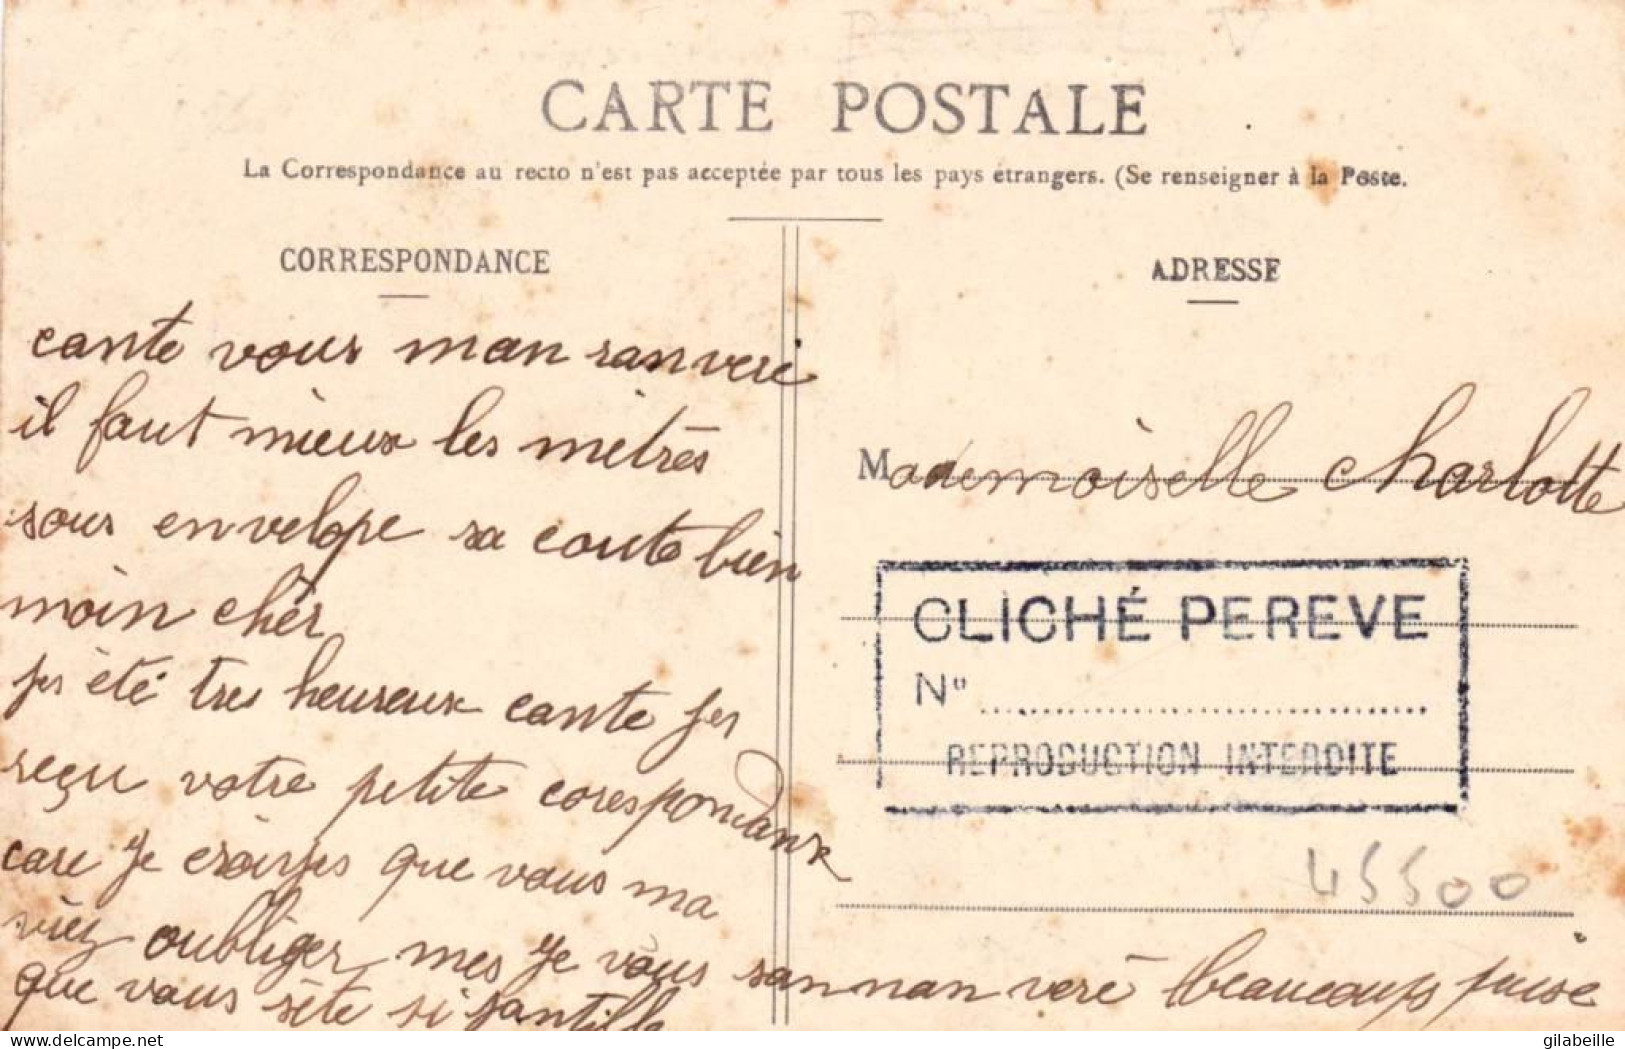 CARTE POSTALE
La Correspondance au recto n'est pas acceptée par tous les pays étrangers. (Se renseigner à la Poste.
CORRESPONDANCE
cante vous man ranveré
il faut mieux les métrés
sous envelope sa coute bien
moin chér
jes été tres heureux cante jes
reçu votre petite corespondanse
care je croiyes que vous ma
viez oubliger mes je vous san nan veré beaucoups puise
que vous sète si jantille
ADRESSE
Mademoiselle Charlotte
CLICHÉ PEREVE
N°
REPRODUCTION INTERDITE
45500
delcampe.net
gilabeille